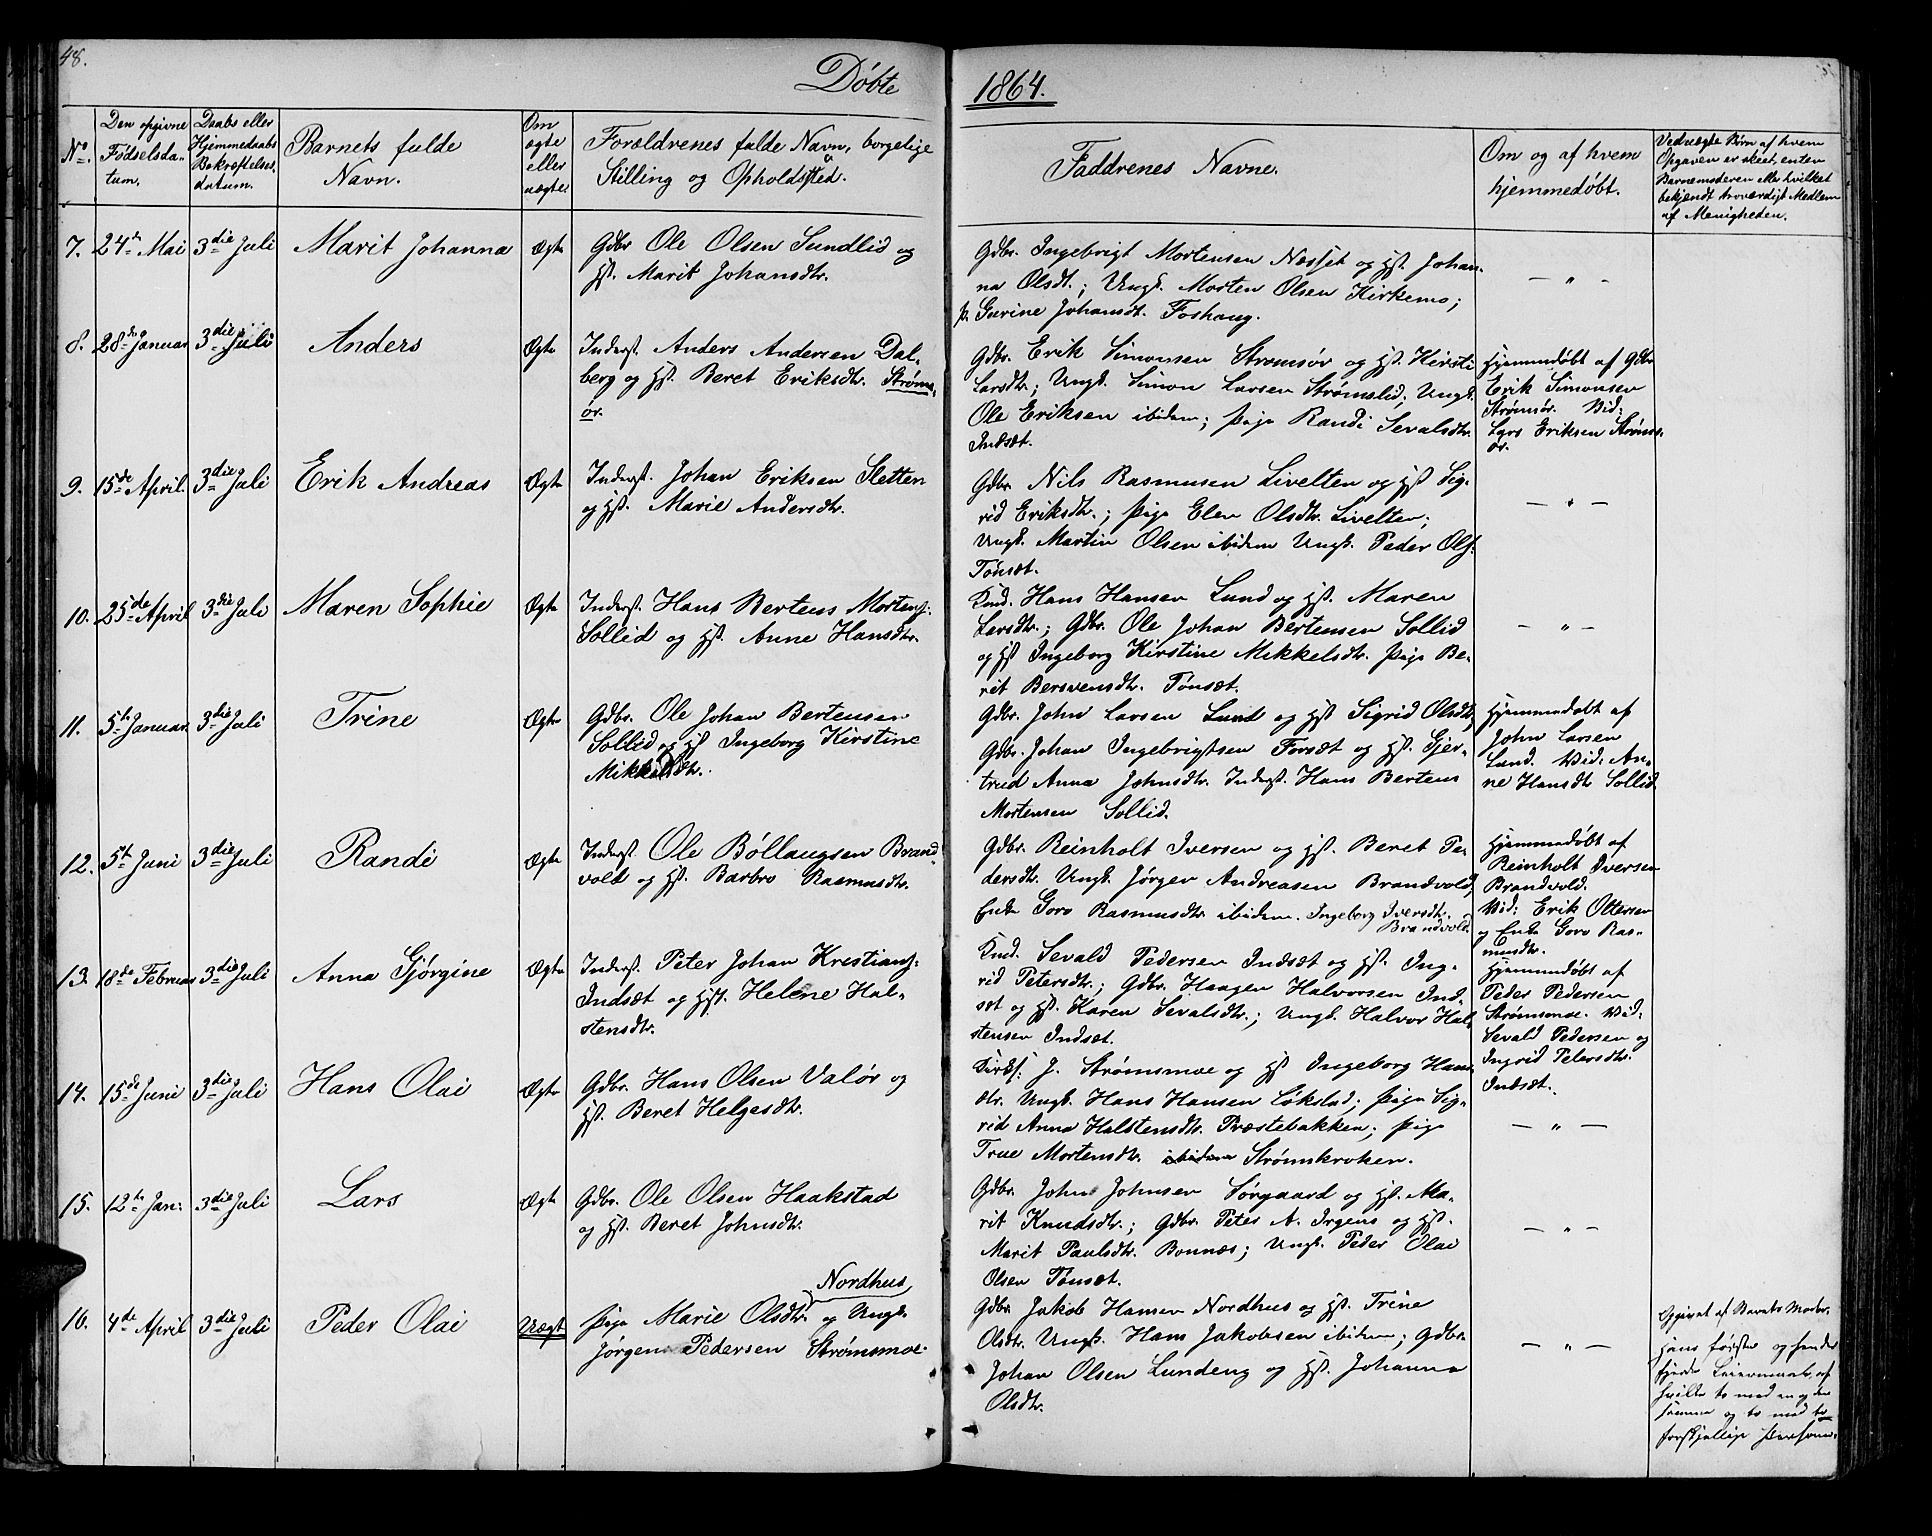 48.
Døbte
1864.
No.
Den opgivne
Fødselsda-
tum.
Daabs eller
Hjemmedaabs
Bekræftelses-
datum.
Barnets fulde
Navn.
Om
ægte
eller
uægte.
Forældrenes fulde Navn, borgelige
Stilling og Opholdssted.
Faddrenes Navne.
Om og af hvem
hjemmedøbt.
Veduægte Børn af hvem
Opgaven er skeet, enten
Barnemoderen eller hvilket
bekjendt troværdigt Medlem
af Menigheden.
7. 24de Mai 3die Juli Marit Johanna Ægte
Gdbr. Ole Olsen Sundlid og
Hst. Marit Johansdtr.
Gdbr. Ingebrigt Mortensen Næsset og Hst. Johan-
na Olsdt.; Ungk. Morten Olsen Kirkemo;
p. Gurine Johansdt. Foshaug.
— " —
8. 28de Januar 3die Juli Anders Ægte
Inderst. Anders Andersen Dal-
berg og Hst. Beret Eriksdtr. Strøms-
ør.
Gdbr. Erik Simonsen Strømsør og Hst. Kirsti
Larsdtr.; Ungk. Simon Larsen Strømslid; Ungk.
Ole Eriksen ibidem; Pige Randi Sevalsdtr.
Indsæt.
Hjemmedøbt af Gdbr
Erik Simonsen
Strømsør. Vid:
Lars Eriksen Strøms-
ør.
9. 15de April. 3die Juli Erik Andreas Ægte
Inderst. Johan Eriksen Sletten
og Hst. Marie Andersdtr.
Gdbr. Nils Rasmusen Livelten og Hst. Sig-
rid Eriksdtr.; Pige Elen Olsdtr. Livelten;
Ungk. Martin Olsen ibidem Ungk. Peder Ols.
Tønsæt.
— " —
10. 25de April 3die Juli Maren Sophie Ægte
Inderst. Hans Bertens Mortens.
Sollid og Hst. Anne Hansdtr.
Kmd. Hans Hansen Lund og Hst. Maren
Larsdtr.; Gdbr. Ole Johan Bertensen Sollid
og Hst Ingeborg Kirstine Mikkelsdtr. Pige Be-
rit Bersvensdtr. Tønsæt.
— " —
11. 5te Januar 3die Juli Trine Ægte
Gdbr. Ole Johan Bertensen
Sollid og Hst Ingeborg Kirstine
Mikkelsdtr.
Gdbr. John Larsen Lund og Hst Sigrid Olsdtr;
Gdbr. Johan Ingebrigtsen Forsæt og Hst. Gjer-
trud Anna Johnsdtr. Inderst. Hans Bertens
Mortensen Sollid.
Hjemmedøbt af
John Larsen
Lund. Vid: An-
ne Hansdtr Sollid.
12. 5te Juni 3die Juli Randi Ægte
Inderst. Ole Bóllaugsen Brand-
vold og Hst. Barbro Rasmusdtr.
Gdbr. Reinholt Iversen og Hst. Beret Pe-
dersdtr. Ungk. Jørgen Andreasen Brandvold;
Enke Goro Rasmusdtr. ibidem. Ingeborg Iversdtr.
Brandvold
Hjemmedøbt af
Reinholt Iversen
Brandvold.
Vid: Erik Ottersen
og Enke Goro Ras-
musdtr.
13. 18de Februar 3die Juli Anna Gjørgine Ægte
Inderst. Peter Johan Kristians.
Indsæt og Hst. Helene Hal-
stensdtr.
Kmd. Sevald Pedersen Indsæt og Hst. Ing-
rid Petersdtr.; Gdbr. Haagen Halvorsen Ind-
sæt og Hst. Karen Sevalsdtr.; Ungk. Halvor Hal-
stensen Indsæt.
Hjemmedøbt af
Peder Pedersen
Strømsmoe. Vid.
Sevald Pedersen og
Ingrid Petersdtr.
Indsæt.
14. 15de Juni 3die Juli Hans Olai Ægte
Gdbr. Hans Olsen Valør og
Hst. Beret Helgesdtr.
Kirks. J. Strømsmoe og Hst Ingeborg Hans-
dtr. Ungk. Hans Hansen Løkstad; Pige Sig-
rid Anna Halstensdtr. Præstebakken; Pige
True Mortensdtr. ibidem Strømskroken.
— " —
15. 12te Jan: 3die Juli Lars Ægte
Gdbr. Ole Olsen Haakstad
og Hst. Beret Johnsdtr.
Gdbr. John Johnsen Sørgaard og Hst. Ma-
rit Knudsdtr.; Gdbr. Peter A. Irgens og Hst.
Marit Paulsdtr. Bonnæs; Ungk. Peder Olai
Olsen Tønsæt.
— " —
16. 4de April 3die Juli Peder Olai Uægte
Nordhus
Pige Marie Olsdtr. og Ungk.
Jørgen Pedersen Strømsmoe.
Gdbr. Jakob Hansen Nordhus og Hst. Trine
Olsdtr. Ungk. Hans Jakobsen ibidem; Gdbr.
Johan Olsen Lundeng og Hst. Johanna
Olsdtr.
— " —
Opgivet af Barnets Moder.
Hans første og hendes
fjerde Leiermaal, af
hvilke to med en og den
samme og to med to
forskjellige Personer.